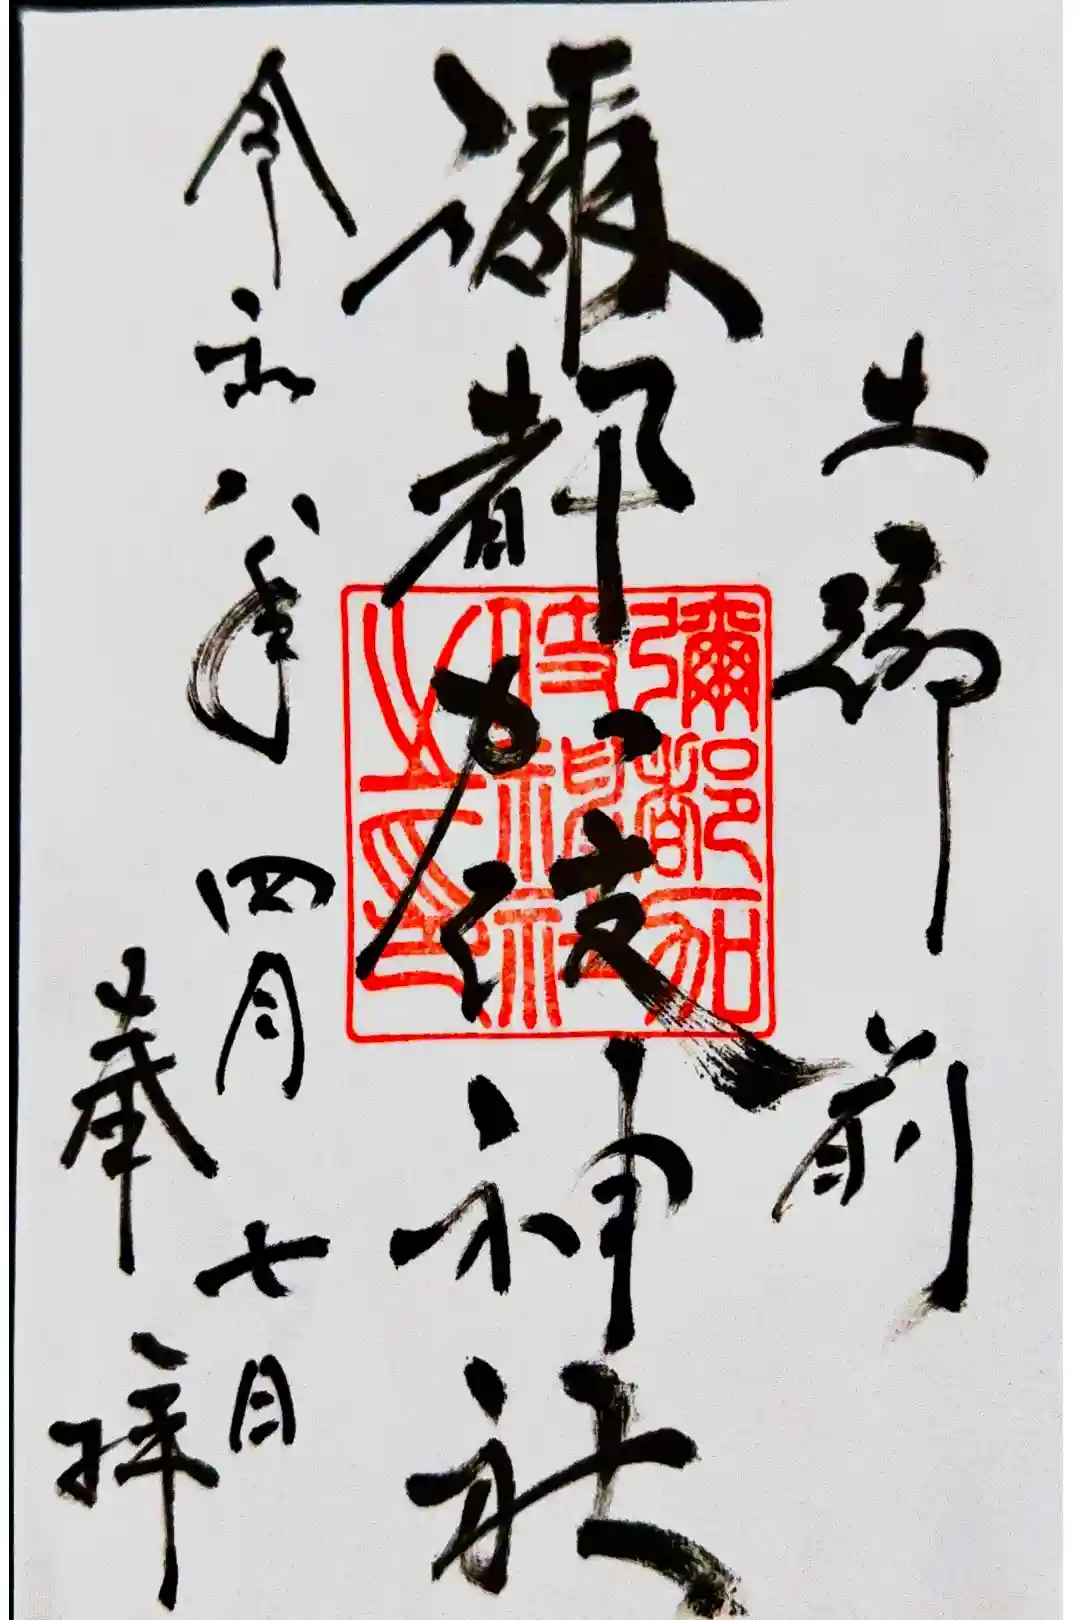 土御前
彌都加伎神社
令和八年四月七日
奉拝
彌都加
伎神社
之印